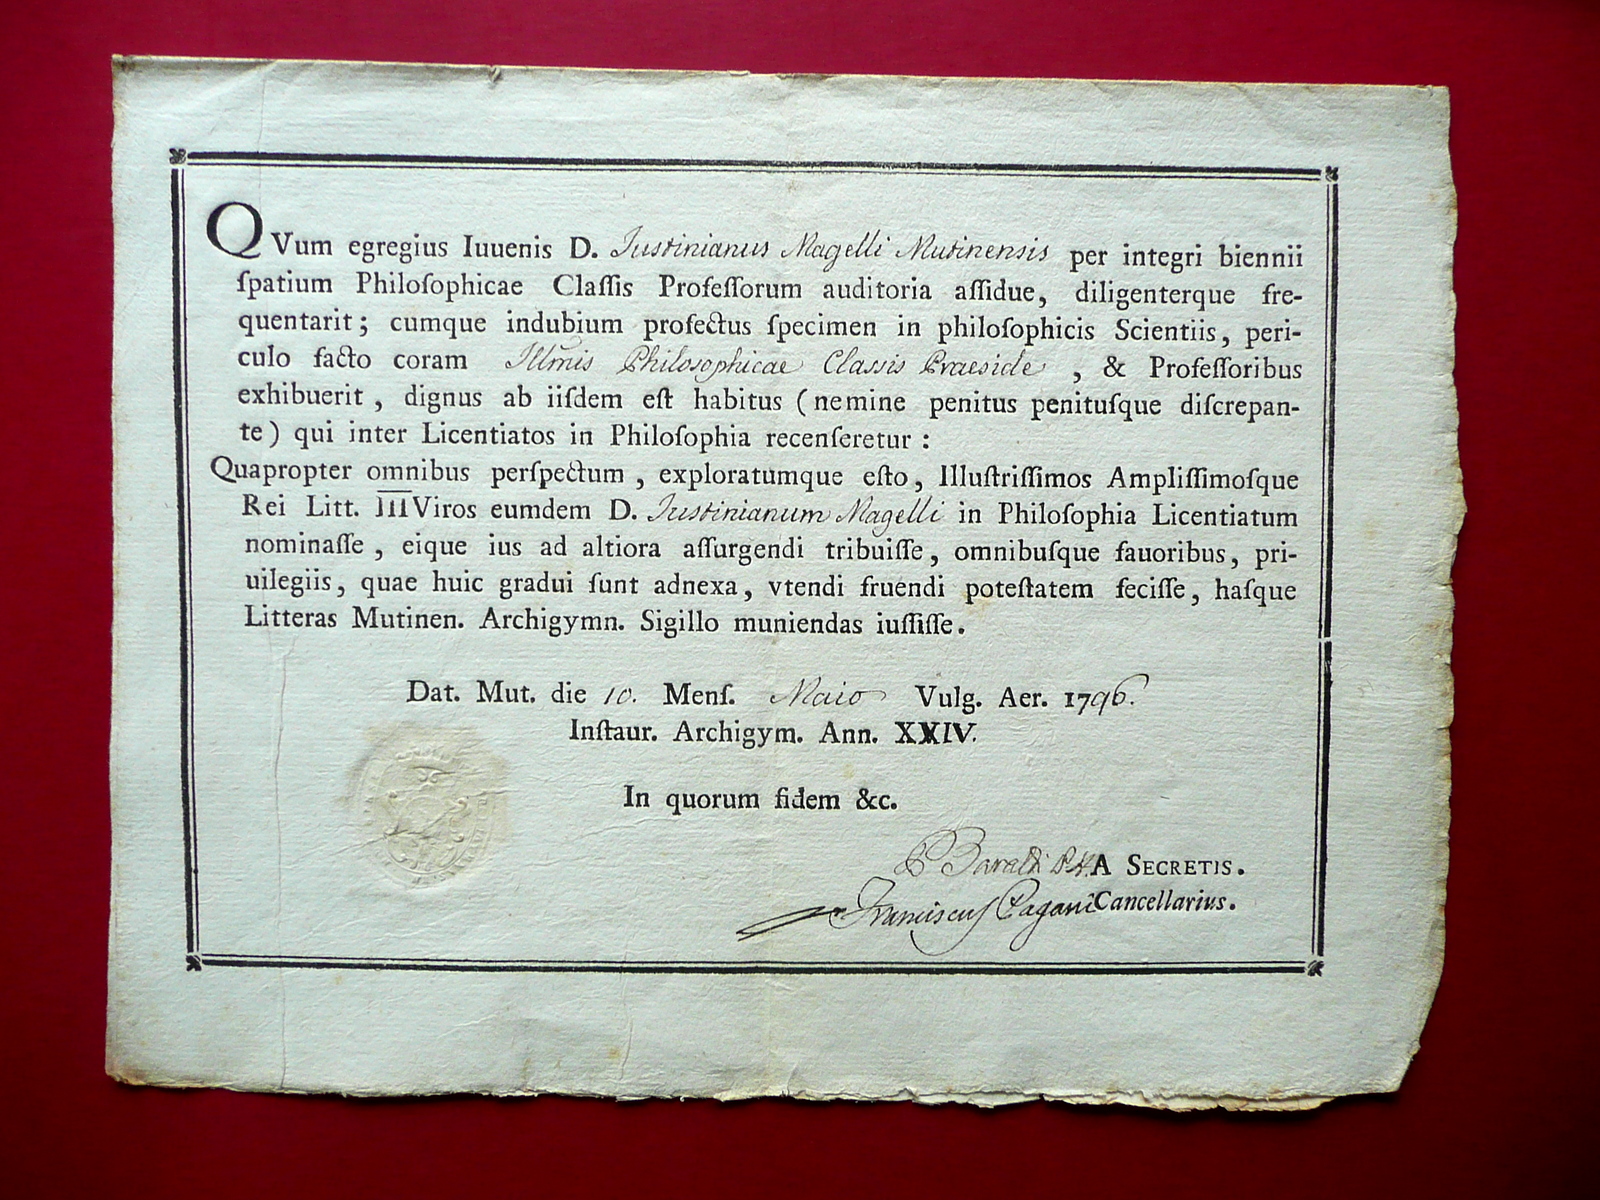 QVum egregius Iuuenis D. Iustinianus Magelli Mutinensis per integri biennii
ſpatium Philoſophicae Claſſis Profeſſorum auditoria aſſidue, diligenterque fre-
quentarit; cumque indubium profectus ſpecimen in philoſophicis Scientiis, peri-
culo facto coram Illm̃is Philosophicae Classis Praeside, & Profeſſoribus
exhibuerit, dignus ab iiſdem eſt habitus (nemine penitus penituſque diſcrepan-
te) qui inter Licentiatos in Philoſophia recenſeretur:
Quapropter omnibus perſpectum, exploratumque eſto, Illuſtriſſimos Ampliſſimoſque
Rei Litt. I̅I̅I̅Viros eumdem D. Iustinianum Magelli in Philoſophia Licentiatum
nominaſſe, eique ius ad altiora aſſurgendi tribuiſſe, omnibuſque fauoribus, pri-
uilegiis, quae huic gradui ſunt adnexa, vtendi fruendi poteſtatem feciſſe, haſque
Litteras Mutinen. Archigymn. Sigillo muniendas iuſſiſſe.
Dat. Mut. die 10. Menſ. Maio Vulg. Aer. 1796.
Inſtaur. Archigym. Ann. XXIV.
In quorum fidem &c.
Baraldi A SECRETIS.
Franciscus Pagani Cancellarius.